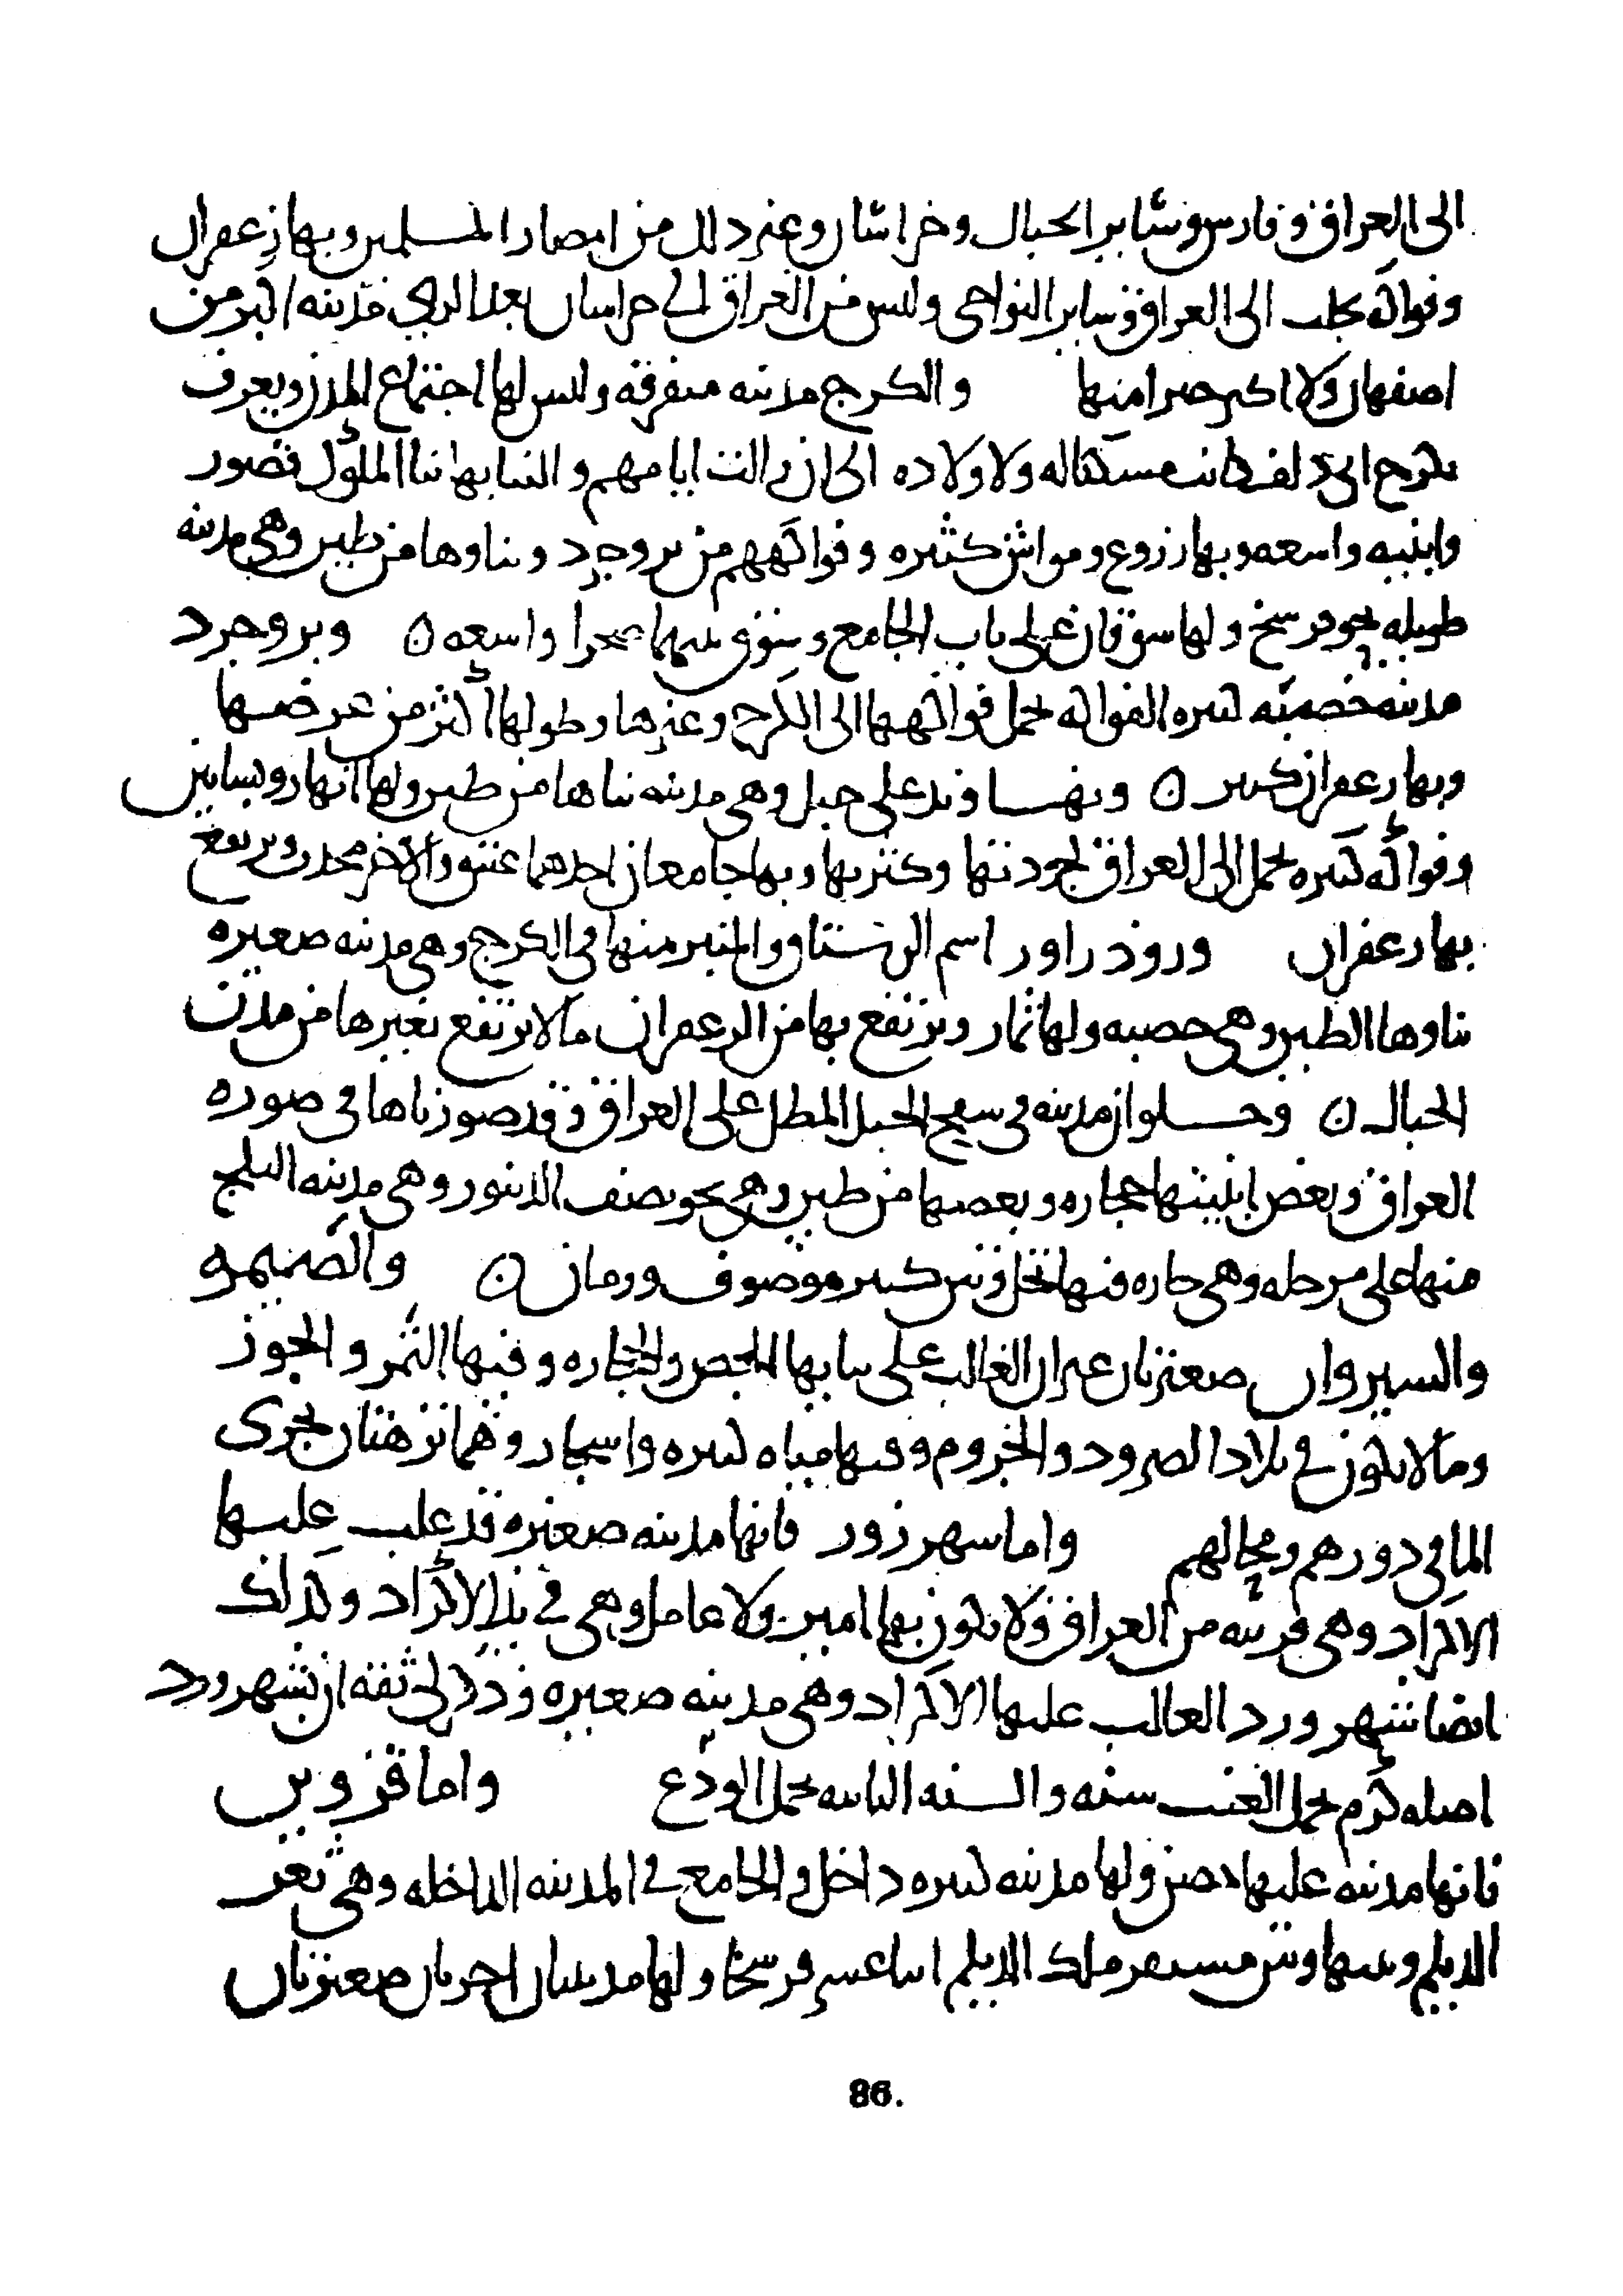 الى العراق و فارس و سائر الجبال و خراسان وغير ذلك من امصار المسلمين وبها زعفران
وفواكه تجلب الى العراق و سائر النواحى وليس من العراق الى خراسان بعد الرى مدينه اكبر من
اصفهان ولا اكبر خيرا منها والكرج مدينه متفرقه وليس لها اجتماع المدن ويعرف
بكرج ابى دلف كانت مسكنا له ولاولاده الى ان زالت ايامهم و البنا بها بنا الملوك قصور
وابنيه واسعه وبها زروع و مواش كثيره و فواكههم من بروجرد و بناوها من طين وهى مدينه
طويله نحو فرسخ و لها سوقان على باب الجامع و سوق بينهما صحرا واسعه ن وبروجرد
مدينه خصبه كثيره الفواكه تحمل فواكهها الى الكرج وغيرها وطولها اكثر من عرضها
وبها زعفران كثير ن ونهاوند على جبل وهى مدينه بناها من طين ولها انهار وبساتين
وفواكه كثيره تحمل الى العراق لجودتها وكثرتها وبها جامعان احدهما عتيق والاخر محدث ويرتفع
بها زعفران وروذراور اسم الرستاق والمنبر منها فى الكرج وهى مدينه صغيره
بناوها الطين وهى خصبه ولها ثمار ويرتفع بها من الزعفران ما لا يرتفع بغيرها من مدن
الجبال ن وحلوان مدينه فى سفح الجبل المطل على العراق وقد صورناها فى صوره
العراق وبعض ابنيتها حجاره وبعضها من طين وهى نحو نصف الدينور وهى مدينه الثلج
منها على مرحله وهى حاره فيها نخل وتين كثير موصوف ورمان ن والصيمره
والسيروان صغيرتان غير ان الغالب على بنائها الجص والحجاره وفيها التمر والجوز
وما لا يكون فى بلاد الصرود والجروم وفيها مياه كثيره واشجار وهما نزهتان تجرى
الما فى دورهم ومحالهم واما شهرزور فانها مدينه صغيره قد غلب عليها
الاكراد وهى قريبه من العراق ولا يكون بها امير ولا عامل وهى فى يد الاكراد وكذلك
ايضا سهرورد الغالب عليها الاكراد وهى مدينه صغيره وذكر لى ثقه ان بسهرورد
اصله كرم تحمل العنب سنه والسنه الثانيه تحمل الودع واما قزوين
فانها مدينه عليها حصن ولها مدينه كثيره داخل والجامع فى المدينه الداخله وهى ثغر
الديلم وبينها وبين مستقر ملك الديلم اثنا عشر فرسخا ولها مدينتان اخريان صغيرتان
86.